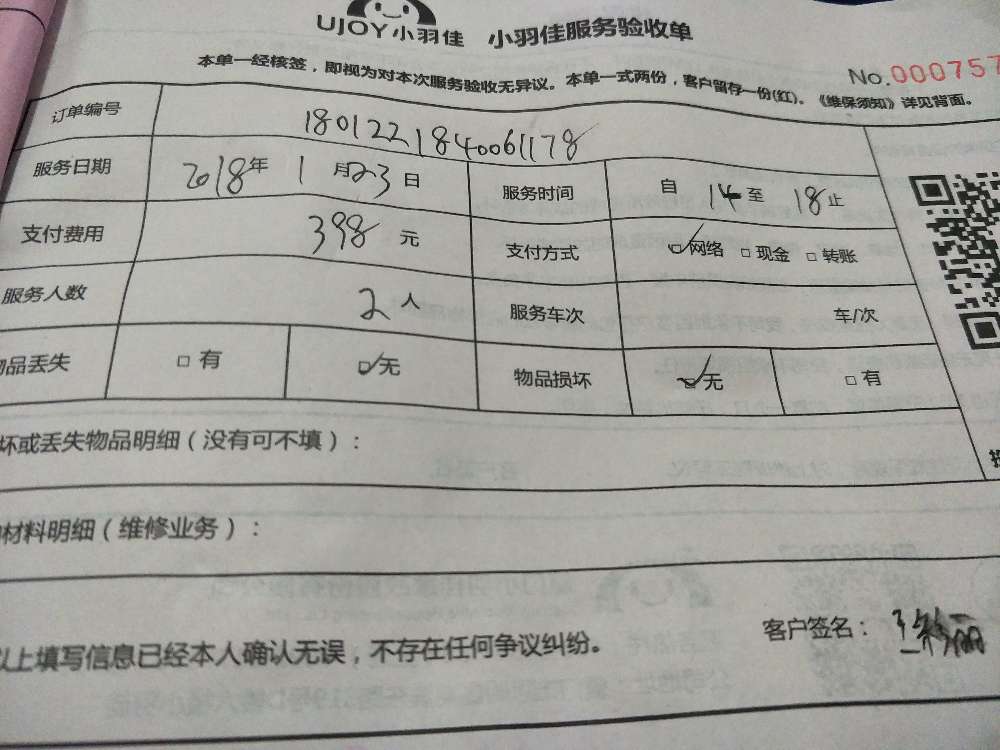 UJOY小羽佳 小羽佳服务验收单
本单一经核签，即视为对本次服务验收无异议。本单一式两份，客户留存一份(红)。《维保须知》详见背面。
No.000757
订单编号 1801221840061178
服务日期 2018年1月23日 服务时间 自14至18止
支付费用 398元 支付方式 网络 现金 转账
服务人数 2人 服务车次 车/次
品丢失 有 无 物品损坏 无 有
坏或丢失物品明细（没有可不填）：
材料明细（维修业务）：
以上填写信息已经本人确认无误，不存在任何争议纠纷。
客户签名：